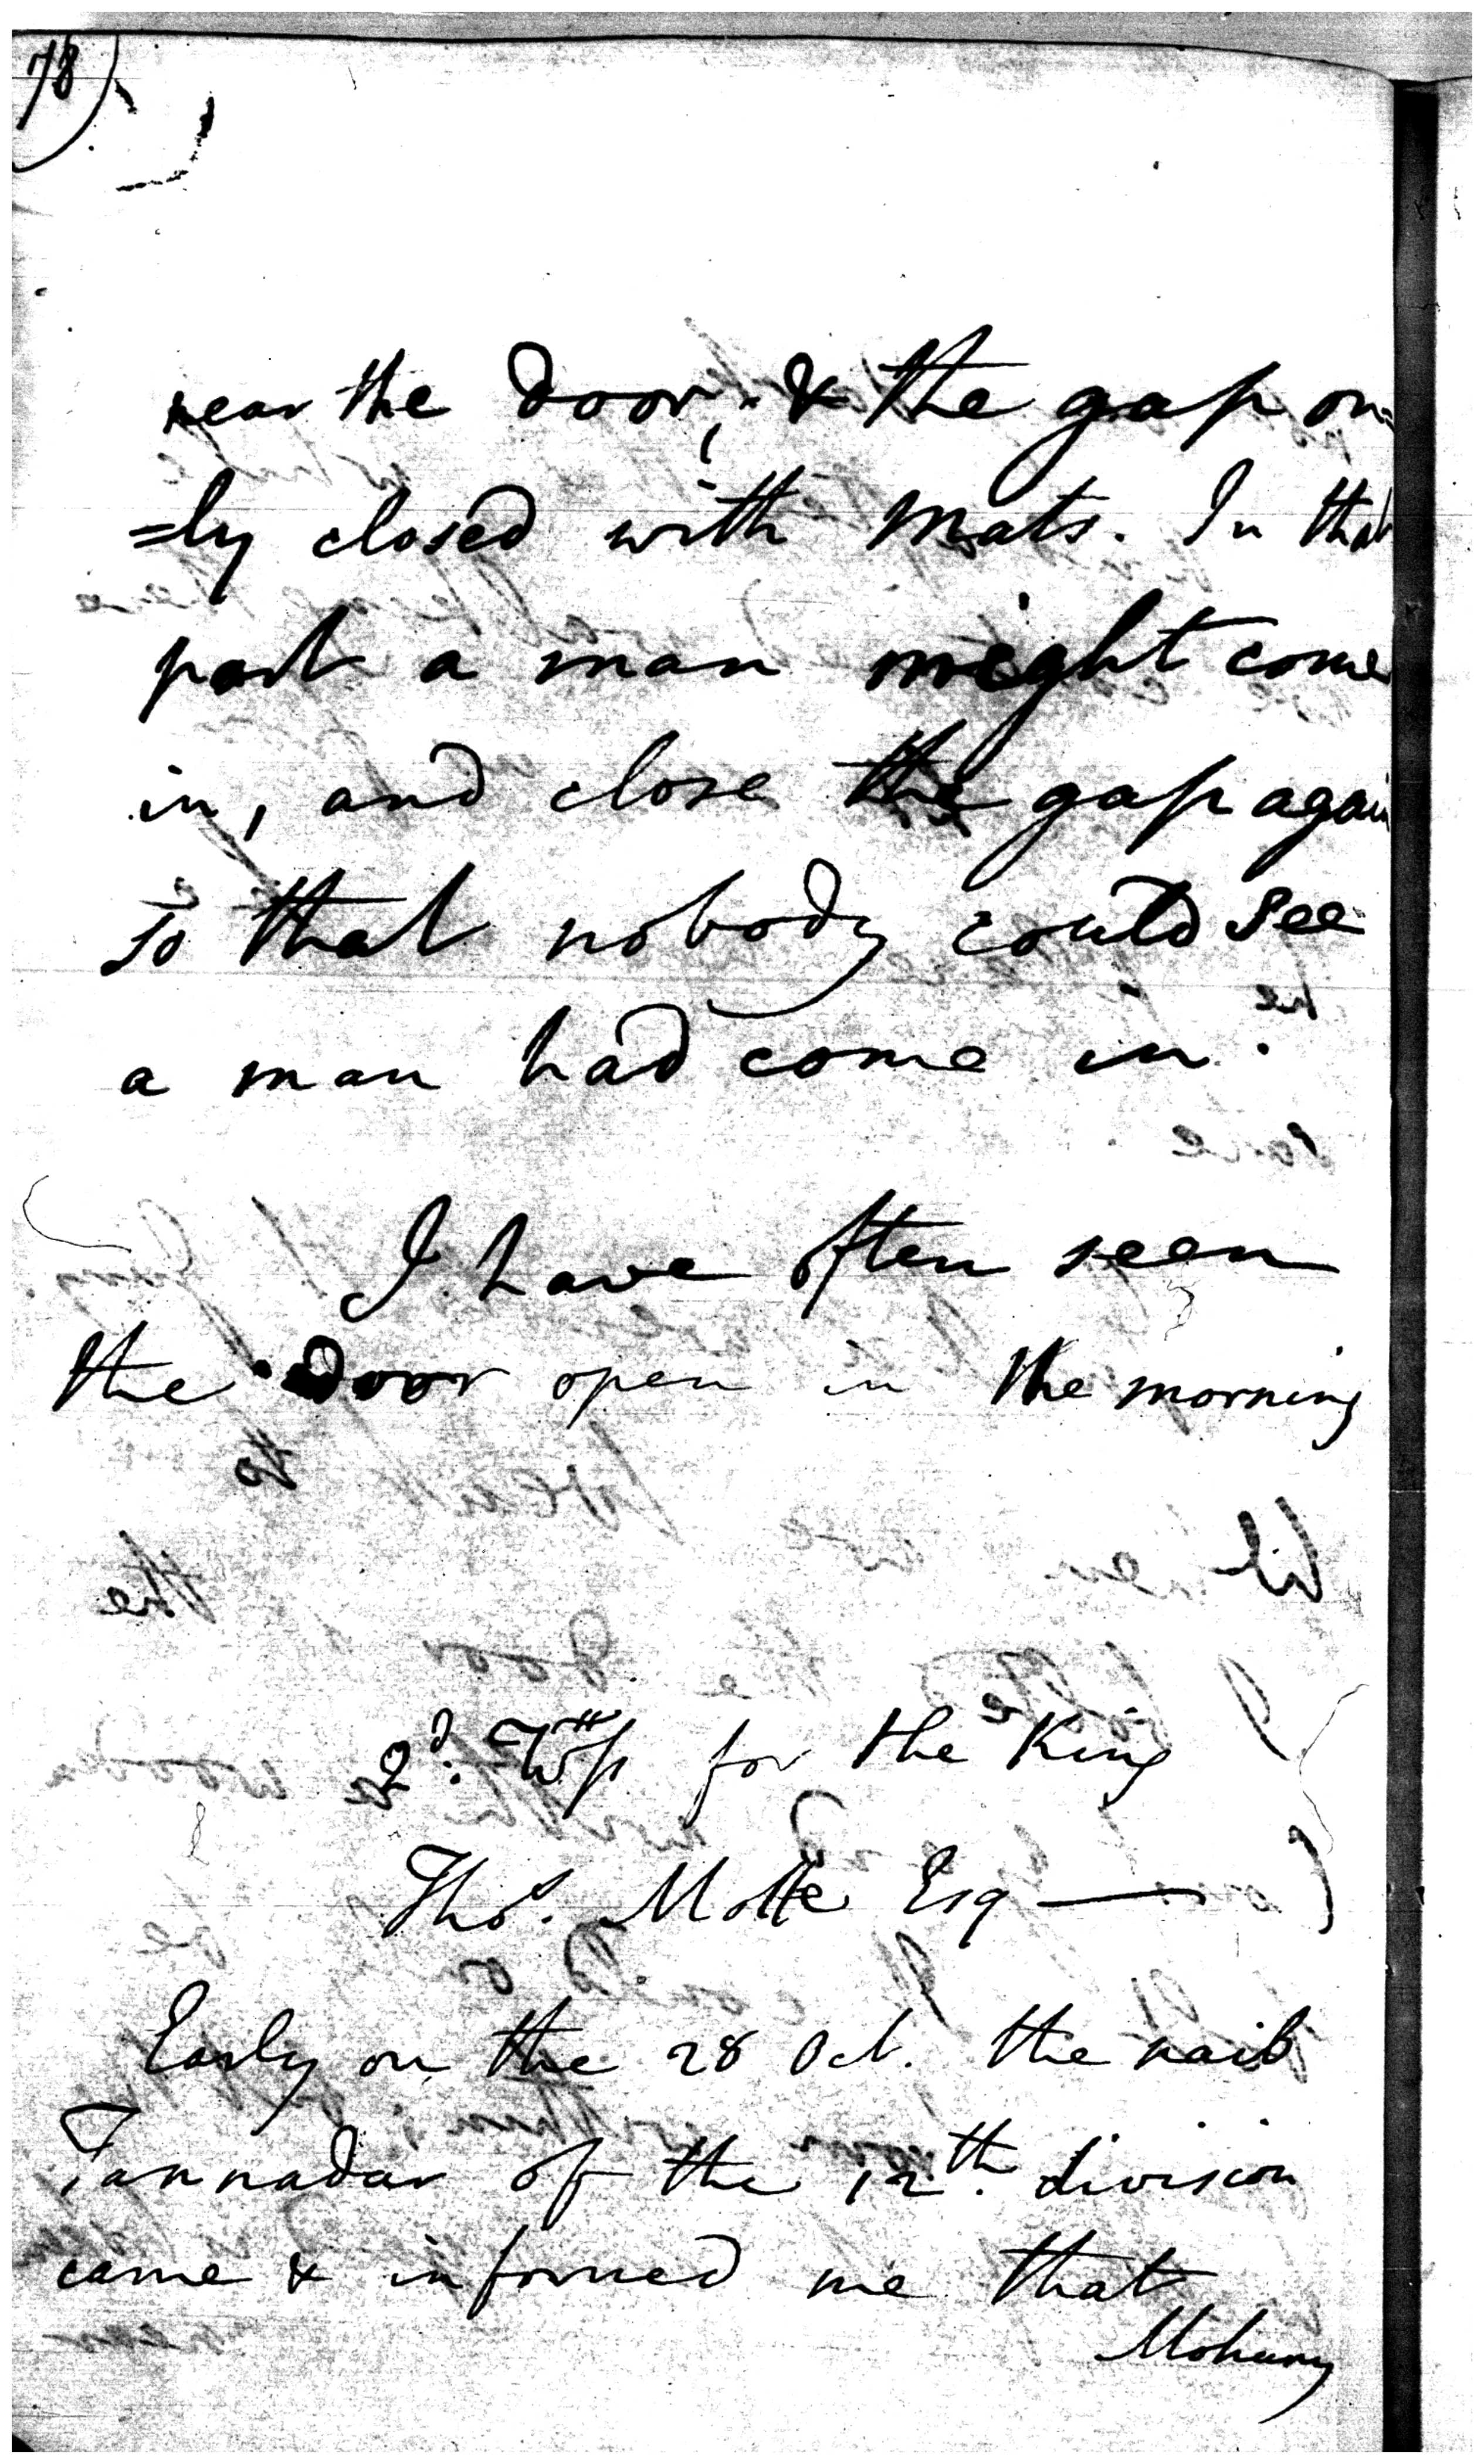 78
near the door, & the gap on=
=ly closed with mats. In that
part a man might come
in, and close the gap again
so that nobody could see
a man had come in.
I have often seen
the door open in the morning
2d. for the King
Thos. Motte Esq
Early on the 28 Oct. the naib
Tannadar of the 12th. division
came & informed me that